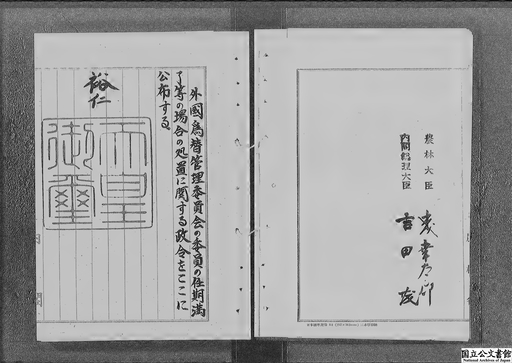 農林大臣
内閣総理大臣 吉田茂
外國為替管理委員会の委員の任期満
了等の場合の処置に関する政令をここに
公布する。
裕仁
天皇
御璽
国立公文書館
National Archives of Japan